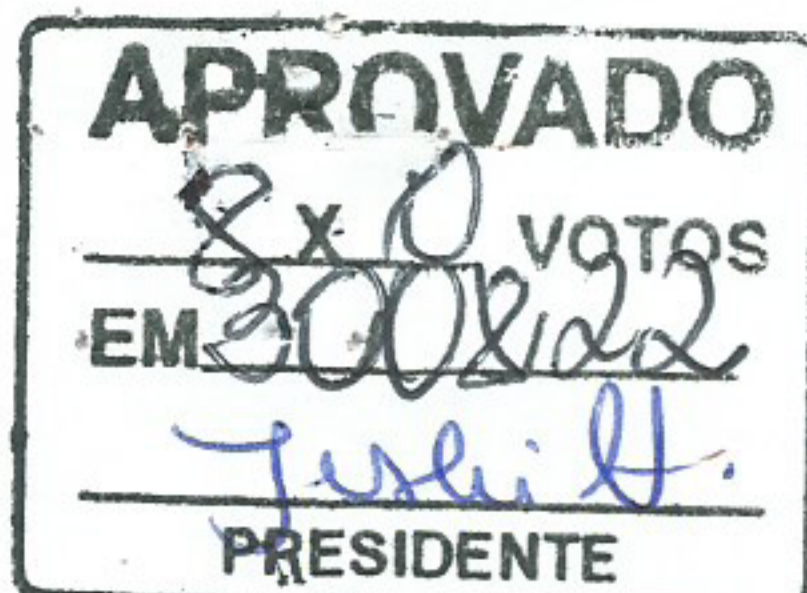 APROVADO
8 X 0 VOTOS
EM 30 08 22
PRESIDENTE